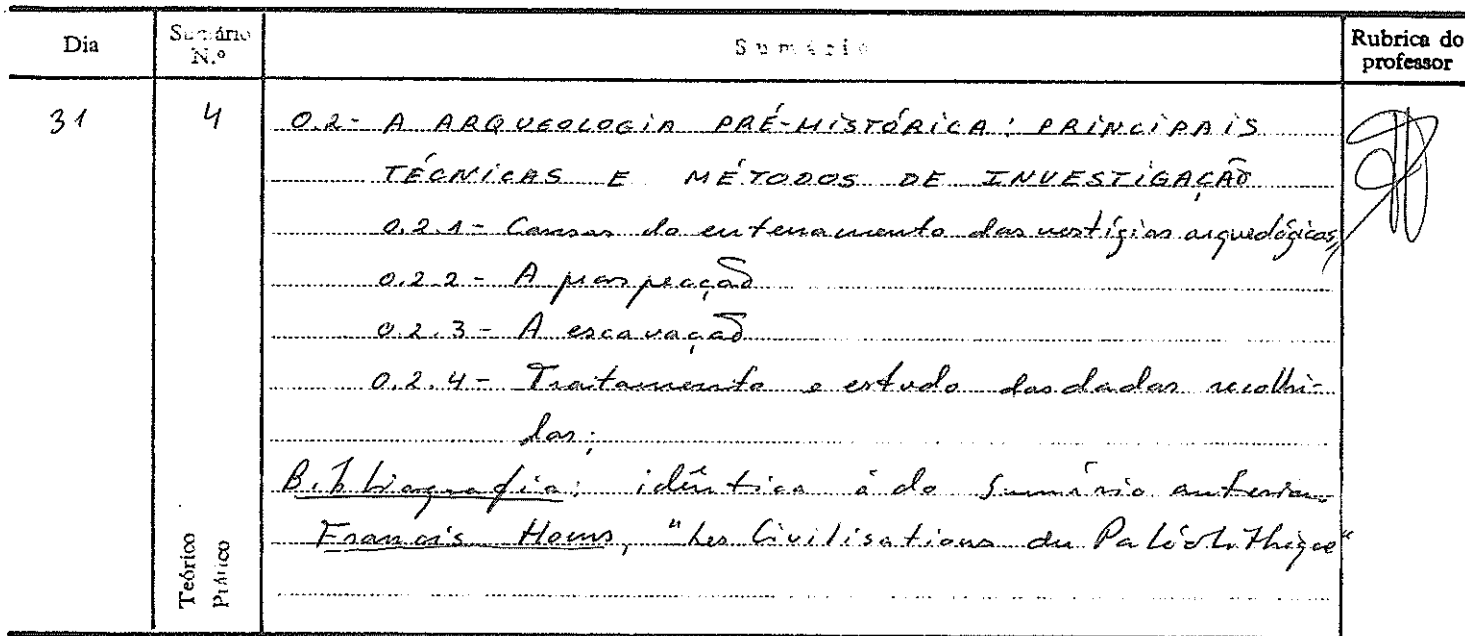 Dia
Sumário N.º
Sumário
Rubrica do professor
31
4
0.2- A ARQUEOLOGIA PRÉ-HISTÓRICA: PRINCIPAIS
TÉCNICAS E MÉTODOS DE INVESTIGAÇÃO
0.2.1- Causas do enterramento dos vestígios arqueológicos,
0.2.2- A prospecção
0.2.3- A escavação
0.2.4- Tratamento e estudo dos dados recolhi-
dos;
Bibliografia: idêntica à do Sumário anterior
Francois Hours, "Les Civilisations du Paléolithique"
Teórico
Prático